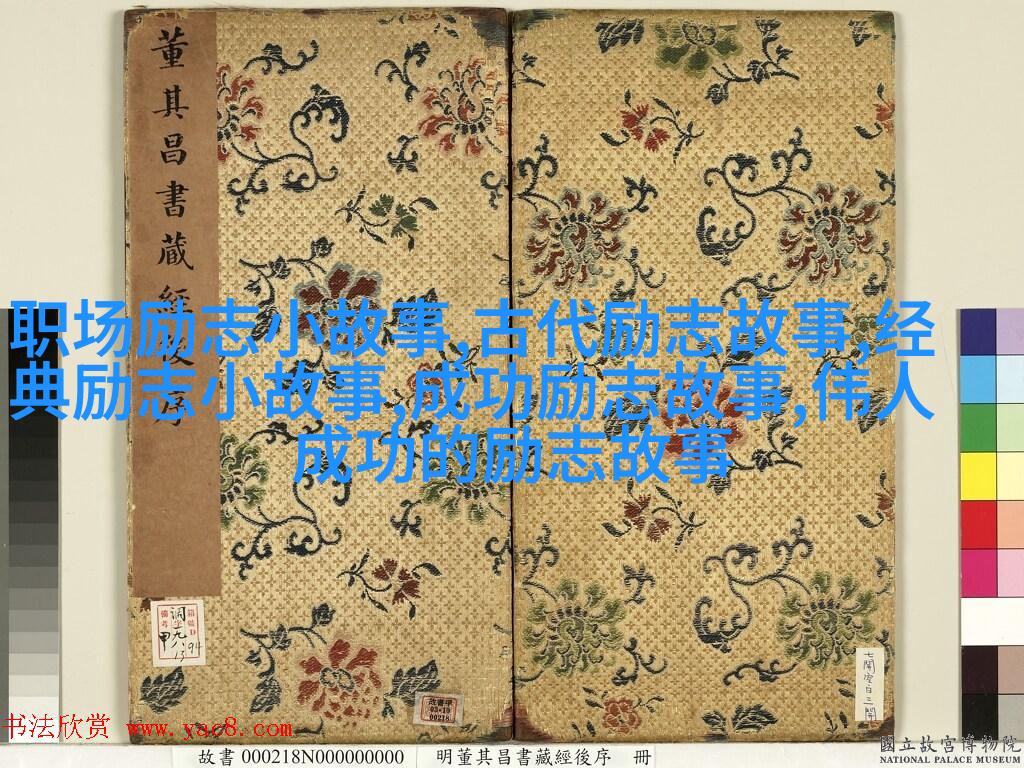 董其昌書藏經後序
职场励志小故事,古代励志故事,经
典励志小故事,成功励志故事,伟人
成功的励志故事
故書甲
03-10
00218
七開空白三開
书法欣赏 www.yac8.com
故書 000218N000000000
明董其昌書藏經後序 冊
國立故宮博物院
NATIONAL PALACE MUSEUM